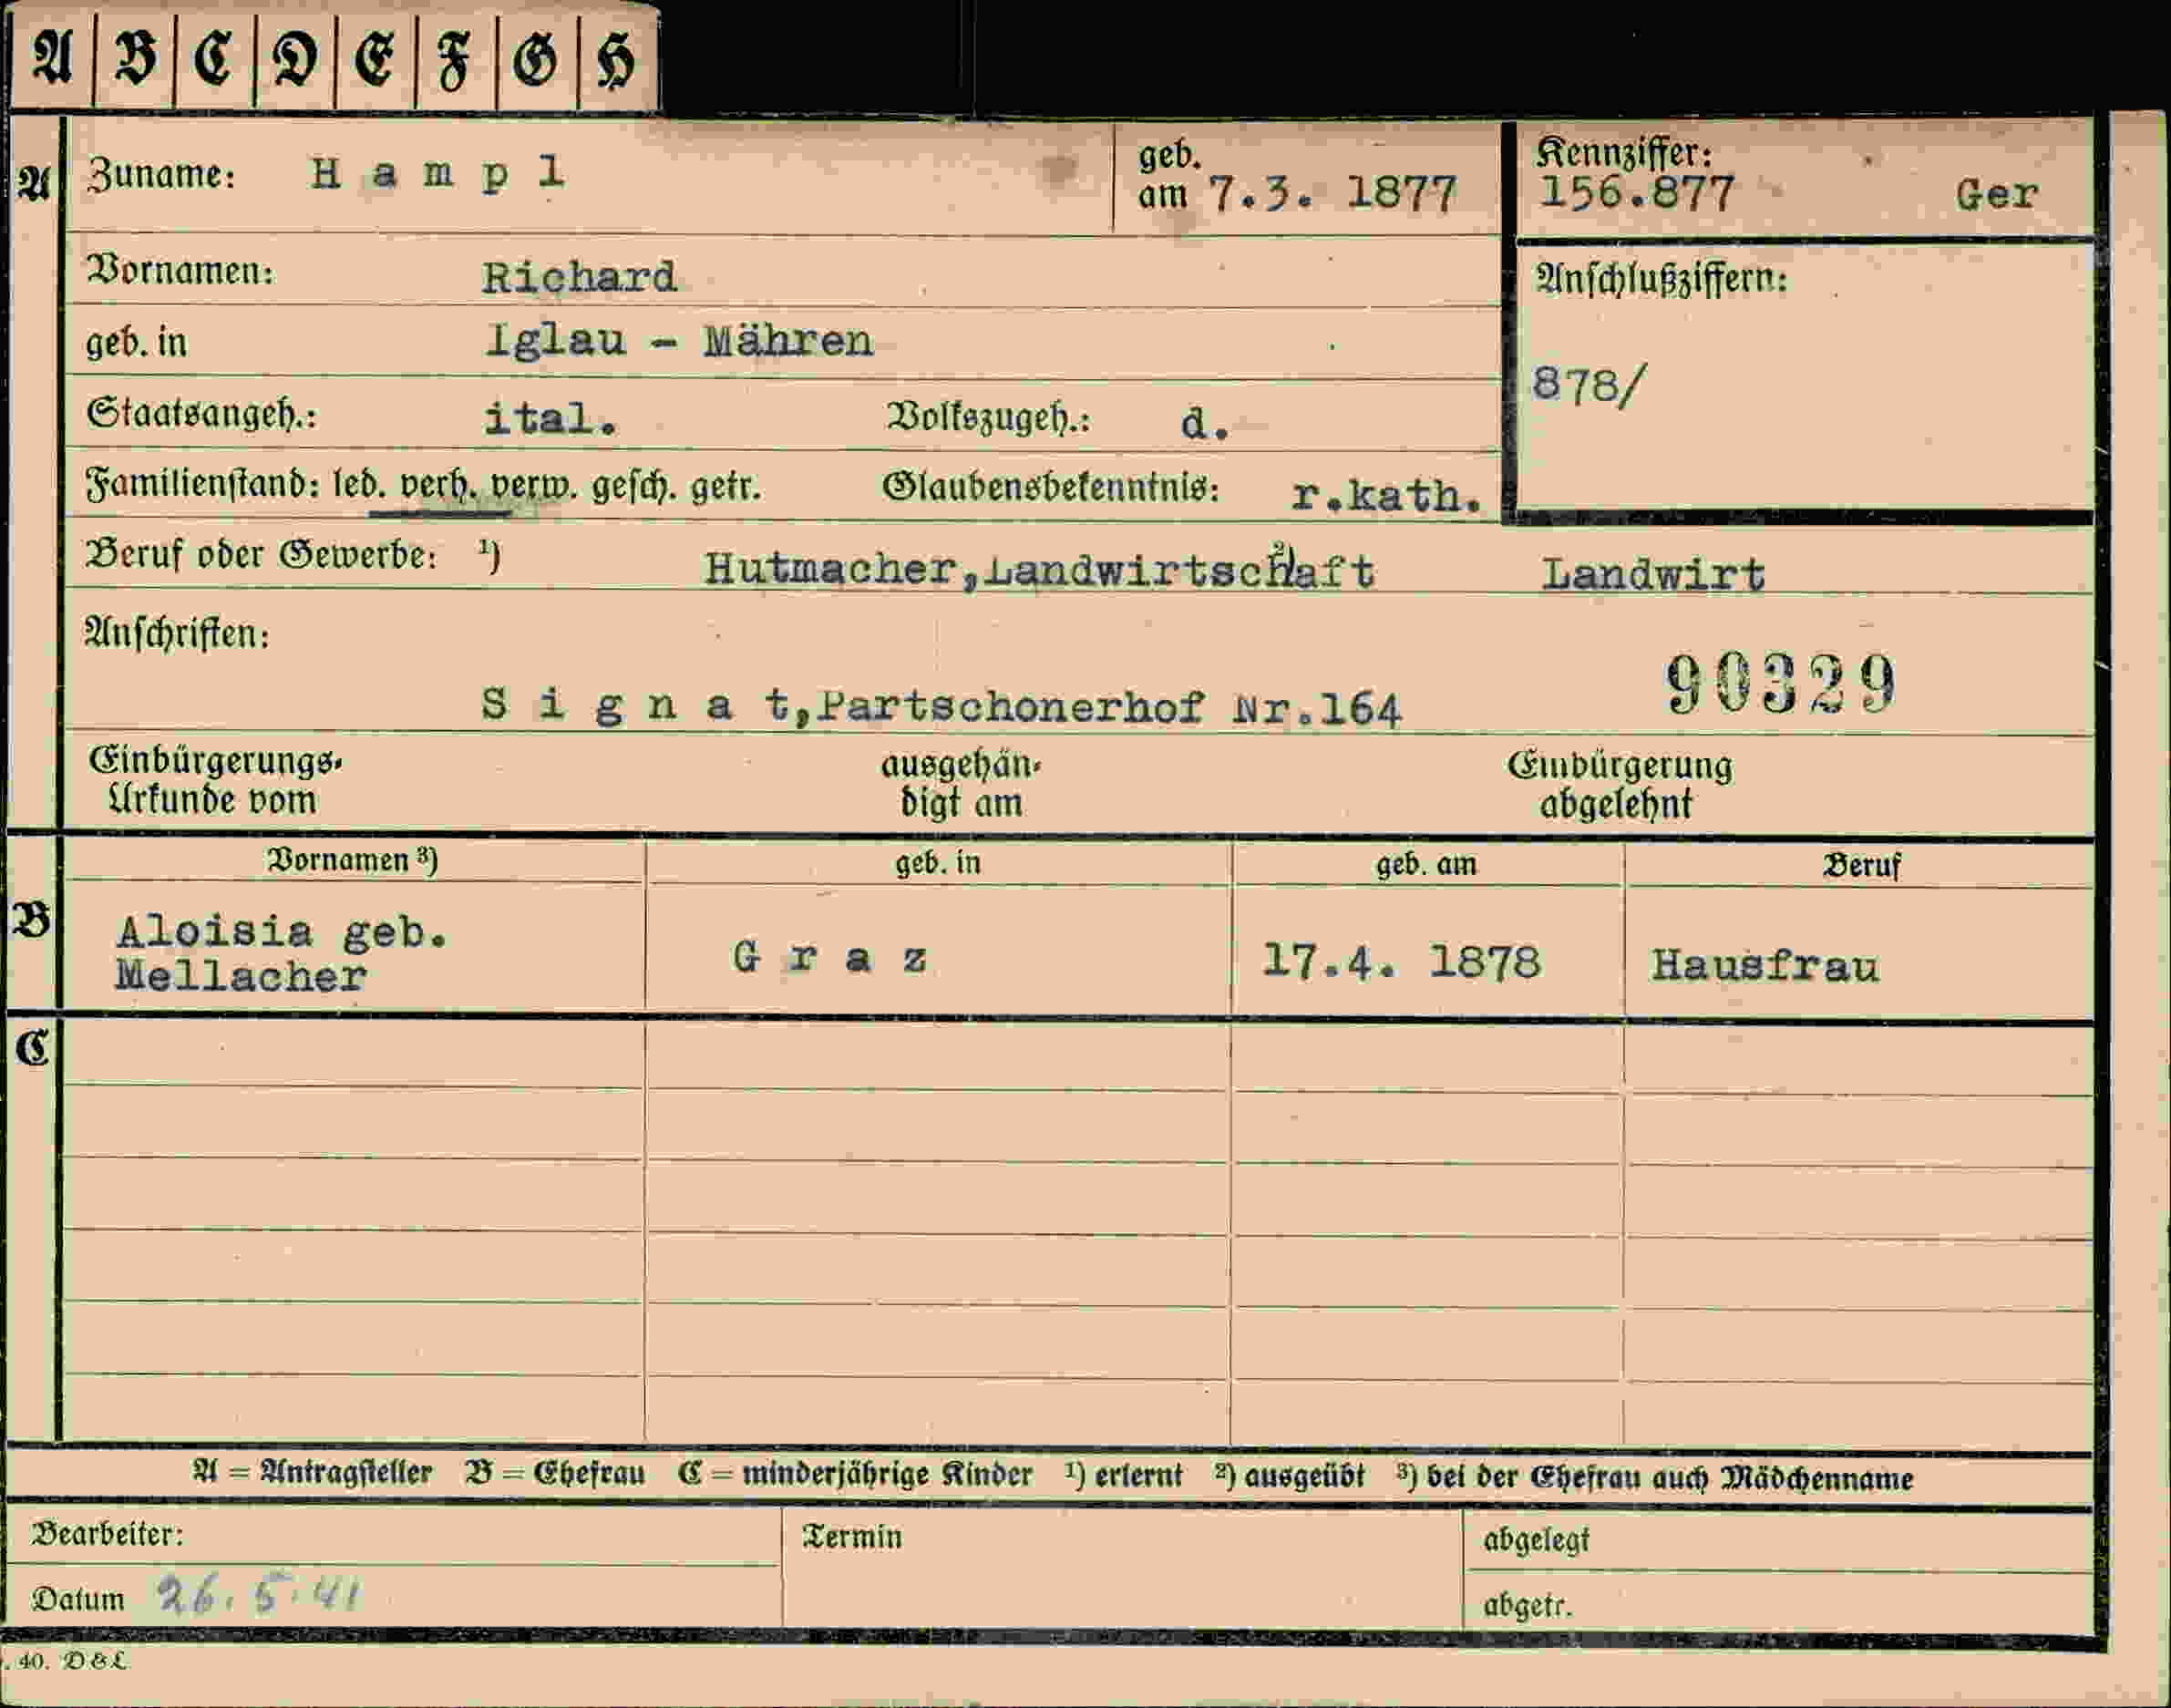 A B C D E F G H
A Zuname: H a m p l geb. am 7.3. 1877 Kennziffer: 156.877 Ger
Vornamen: Richard Anschlußziffern:
geb. in Iglau - Mähren 878/
Staatsangeh.: ital. Volkszugeh.: d.
Familienstand: led. verh. verw. gesch. getr. Glaubensbekenntnis: r.kath.
Beruf oder Gewerbe: ¹) Hutmacher,Landwirtschaft ²) Landwirt
Anschriften:
90329
S i g n a t,Partschonerhof Nr.164
Einbürgerungs- ausgehän- Einbürgerung
Urkunde vom digt am abgelehnt
Vornamen ³) geb. in geb. am Beruf
B Aloisia geb.
Mellacher G r a z 17.4. 1878 Hausfrau
C
A = Antragsteller B = Ehefrau C = minderjährige Kinder ¹) erlernt ²) ausgeübt ³) bei der Ehefrau auch Mädchenname
Bearbeiter: Termin abgelegt
Datum 26.5.41 abgetr.
. 40. D & L